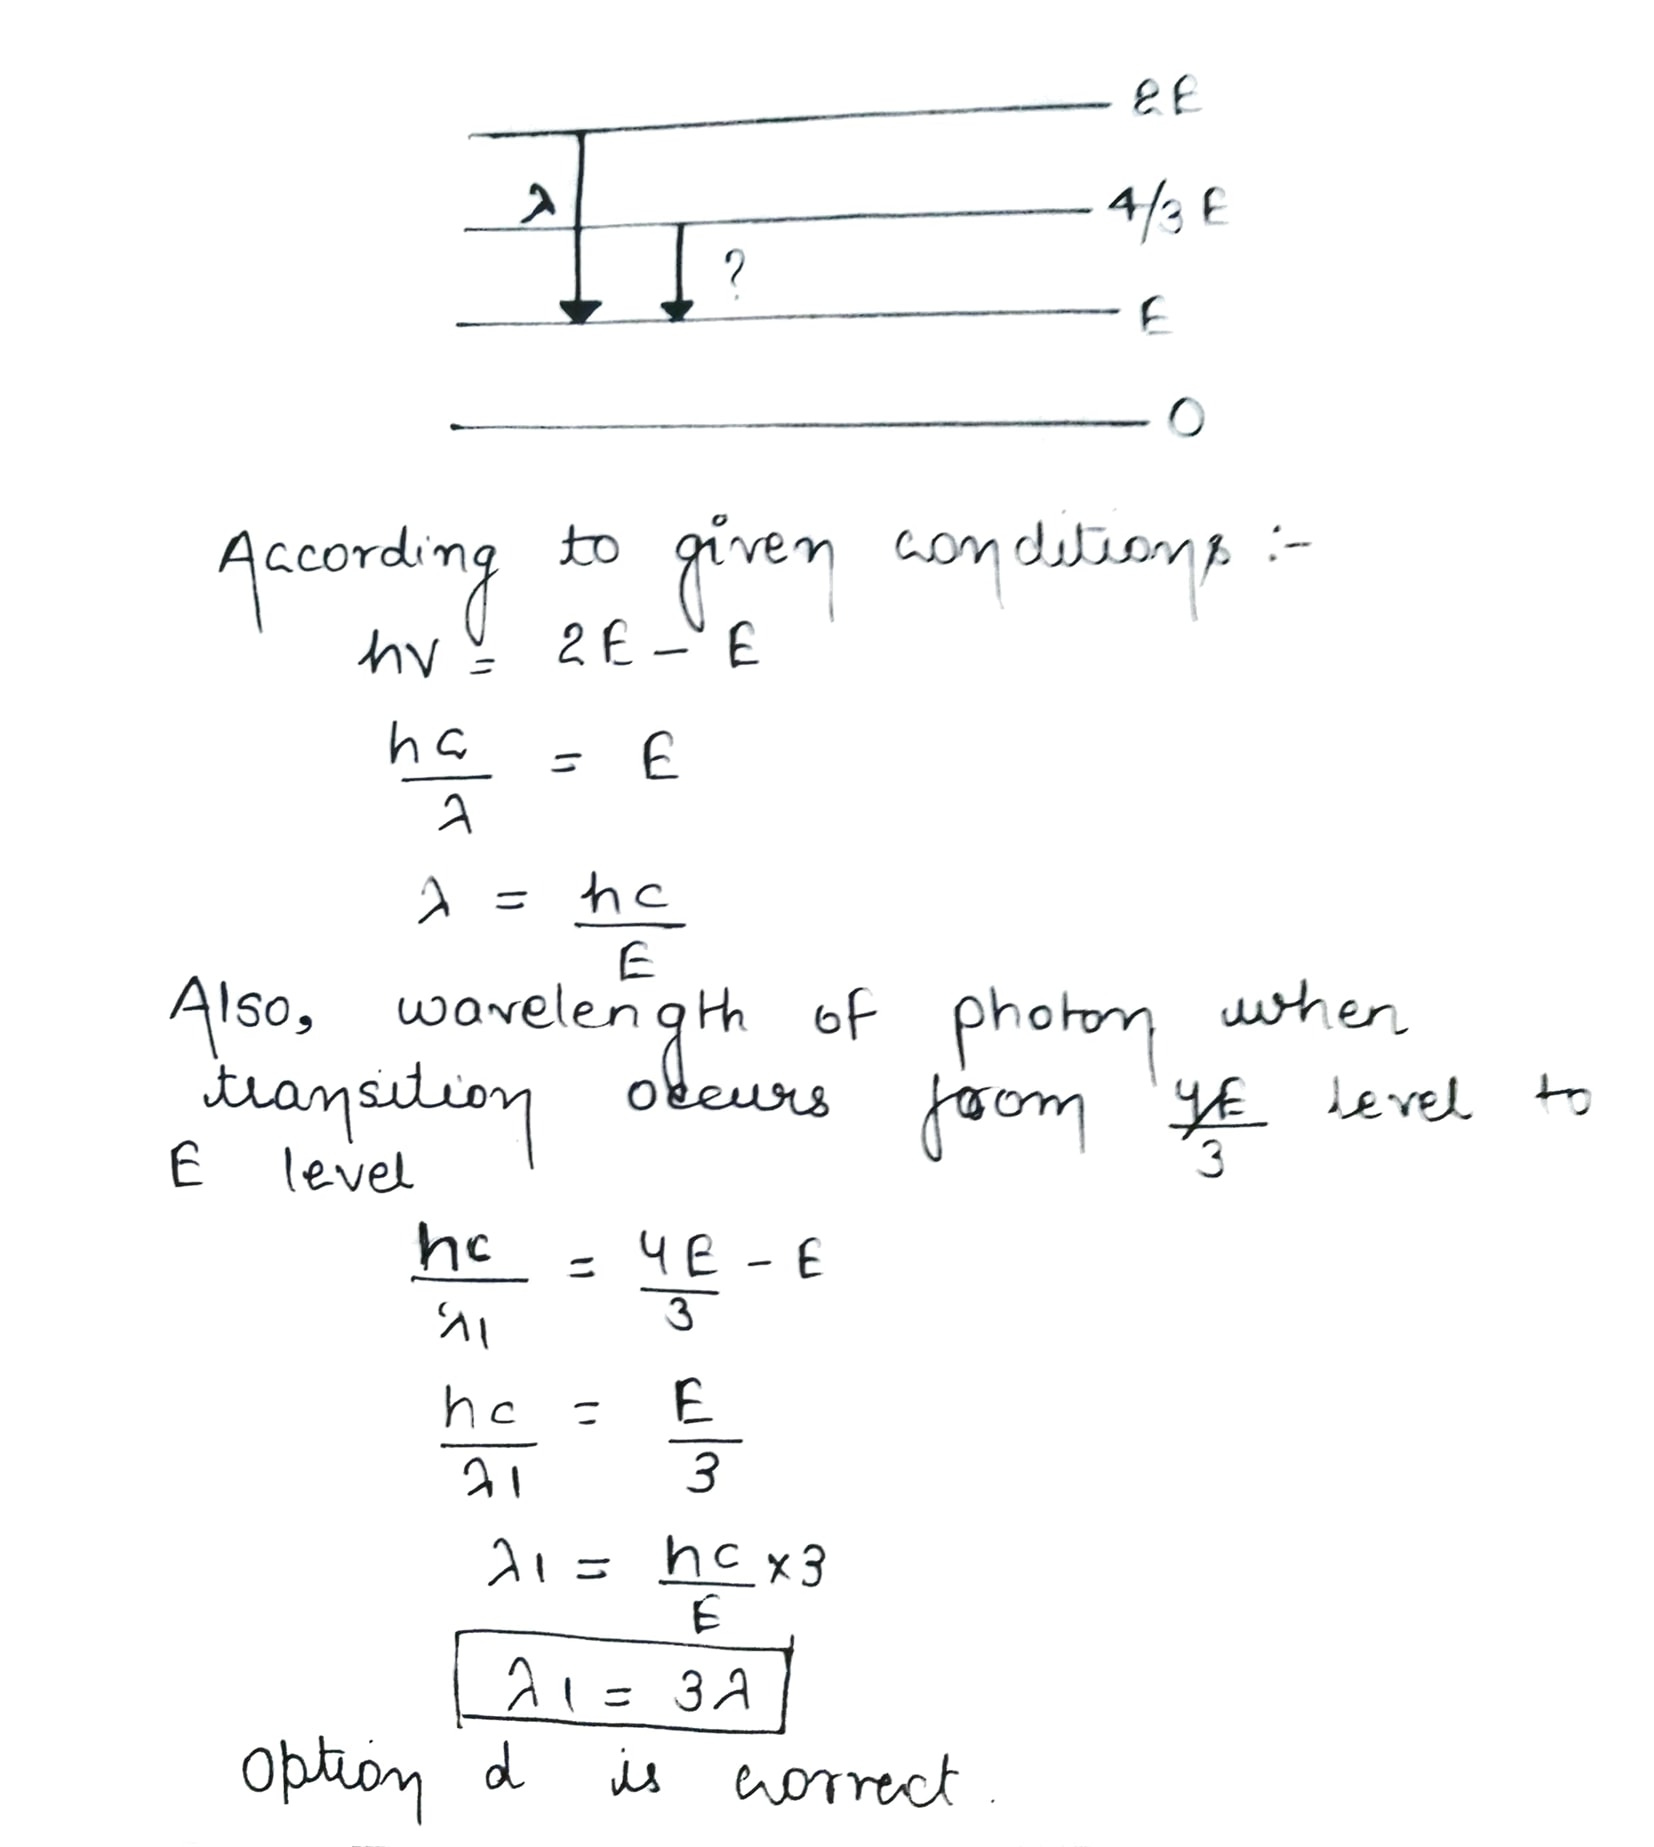 2E
λ
4/3 E
?
E
0
According to given conditions :-
hν = 2E - E
hc/λ = E
λ = hc/E
Also, wavelength of photon when
transition occurs from 4E/3 level to
E level
hc/λ1 = 4E/3 - E
hc/λ1 = E/3
λ1 = hc/E ×3
λ1 = 3λ
Option d is correct.